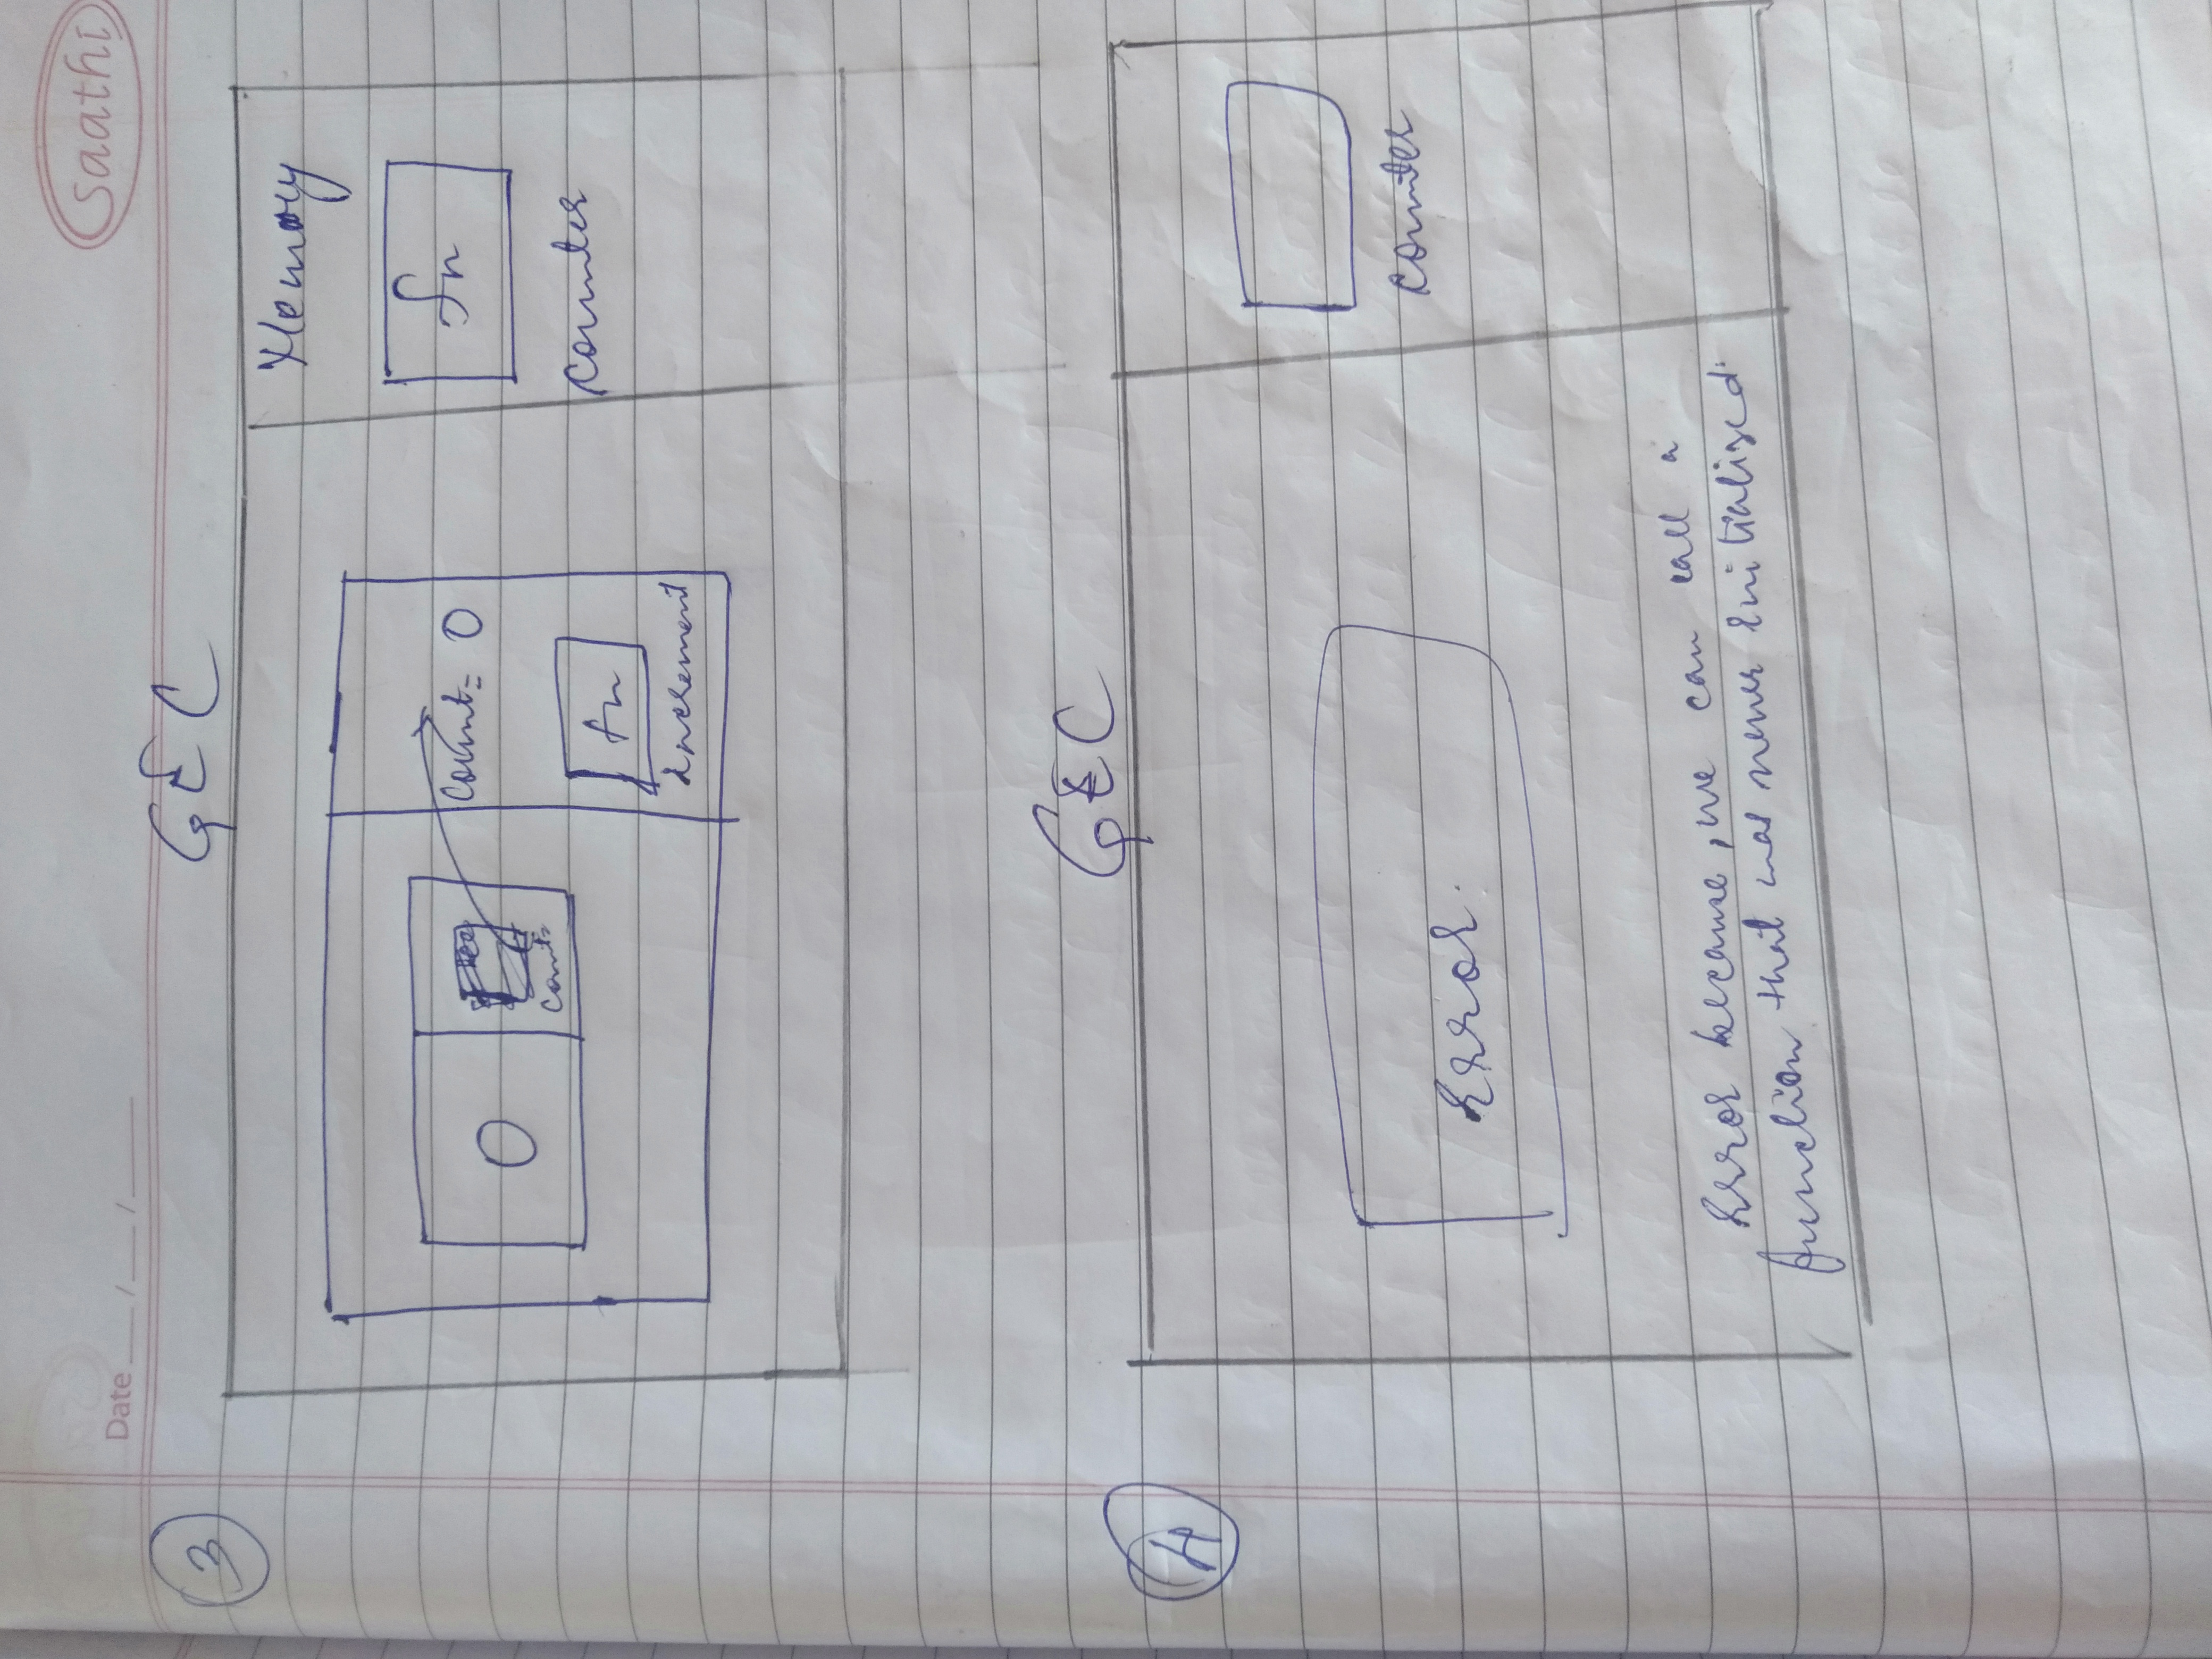 Saathi
Date __/__/__
3
GEC
Memory
fn
counter
count = 0
fn
increment
0
count
4
GEC
counter
Error.
Error because, we can call a
function that was never initialized.